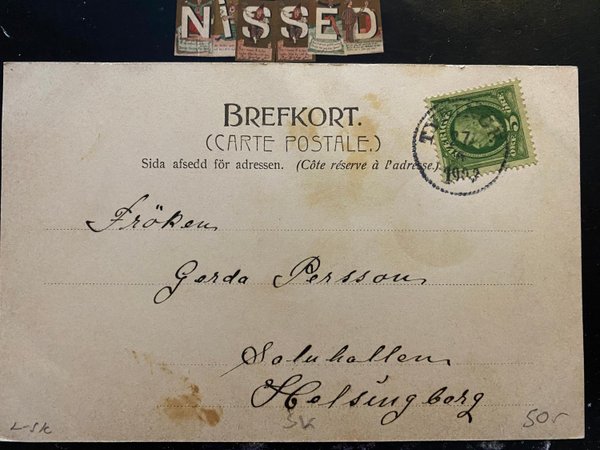 NISSED
BREFKORT.
(CARTE POSTALE.)
Sida afsedd för adressen. (Côte réservé à l'adresse.)
1902
Fröken
Gerda Persson
Saluhallen
Helsingborg
L-SK
SK
50:-